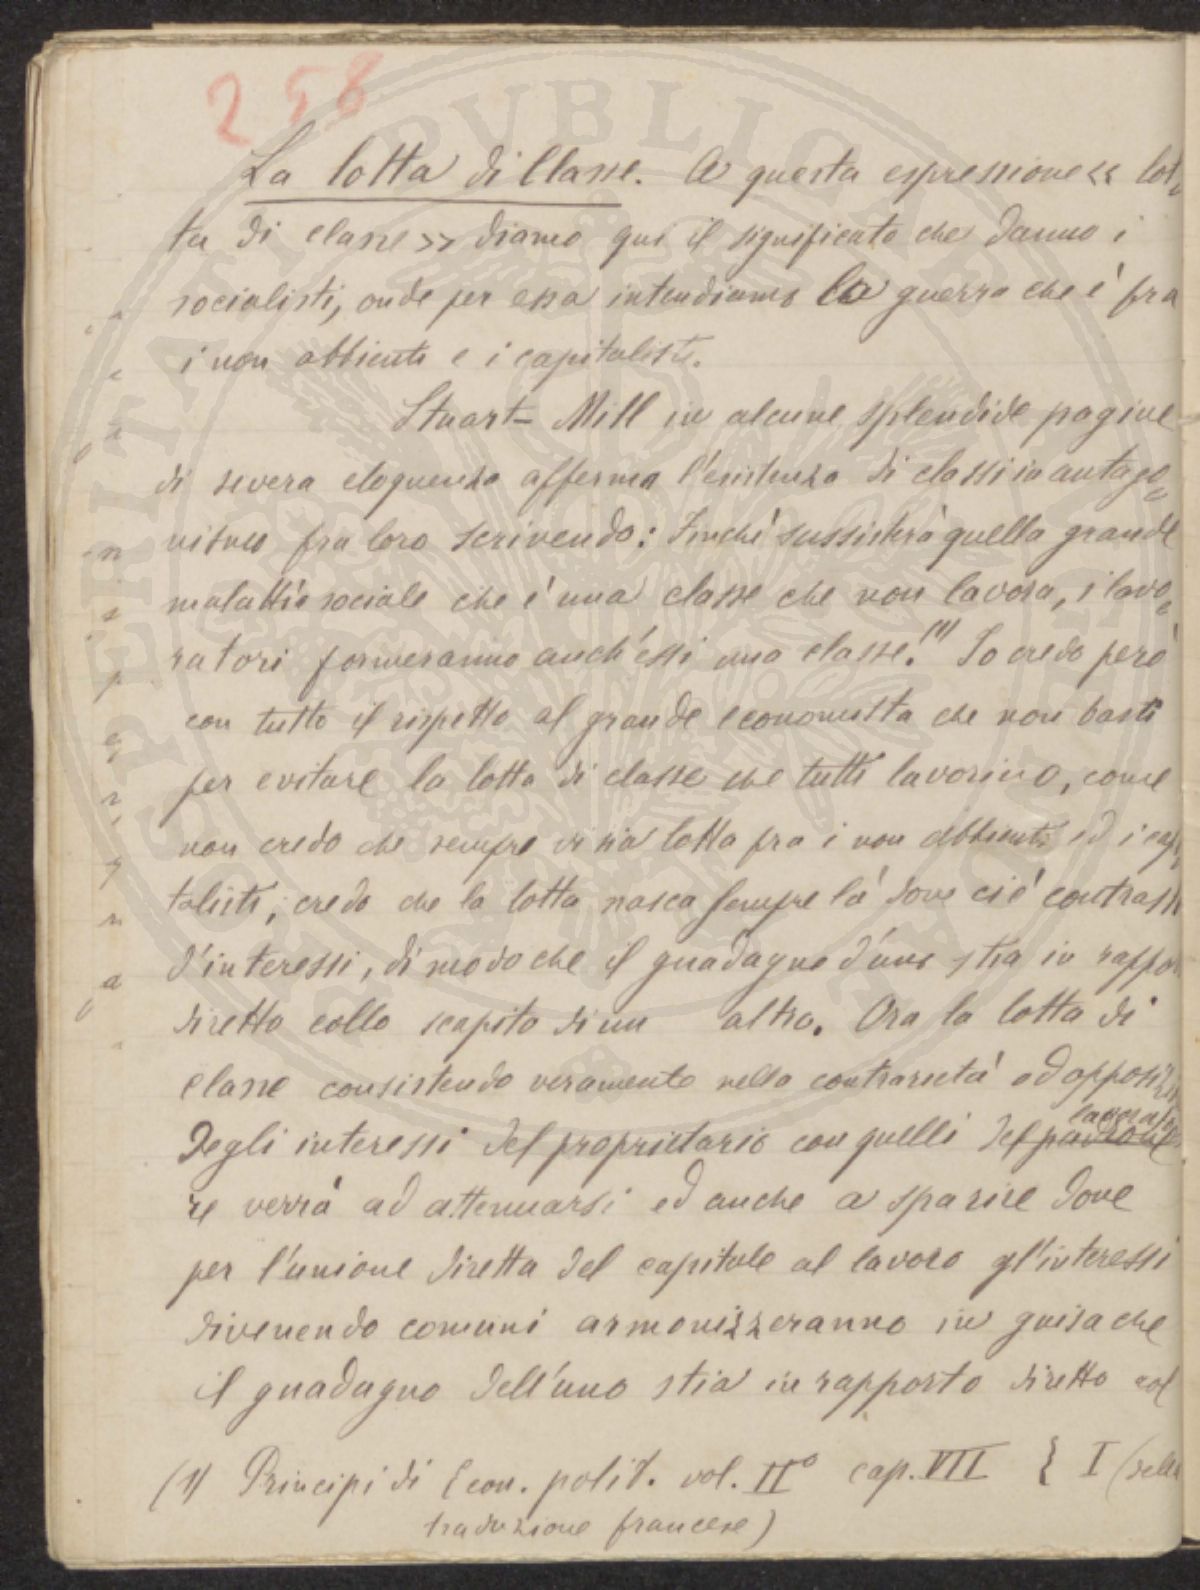 258
La lotta di Classe. A questa espressione << lot=
ta di classe >> diamo qui il significato che danno i
socialisti, onde per essa intendiamo la guerra che è fra
i non abbienti e i capitalisti.
Stuart-Mill in alcune splendide pagine
di severa eloquenza afferma l'esistenza di classi in antago=
nismo fra loro scrivendo: Finchè sussisterà quella grande
malattia sociale che è una classe che non lavora, i lavo=
ratori formeranno anch'essi una classe.(1) Io credo però
con tutto il rispetto al grande economista che non basti
per evitare la lotta di classe che tutti lavorino, come
non credo che sempre vi sia lotta fra i non abbienti ed i capi=
talisti; credo che la lotta nasca sempre là dove ci è contrasto
d'interessi, di modo che il guadagno d'uno stia in rappor
diretto collo scapito di un altro. Ora la lotta di
classe consistendo veramente nella contrarietà ed opposiz
degli interessi del proprietario con quelli del padrone lavorato
re verrà ad attenuarsi ed anche a sparire dove
per l'unione diretta del capitale al lavoro gl'interessi
divenendo comuni armonizzeranno in guisa che
il guadagno dell'uno stia in rapporto diretto col
(1) Principi di Econ. polit. vol. II° cap. VII § I (nella
traduzione francese)
PROSPERITATI PVBLICAE